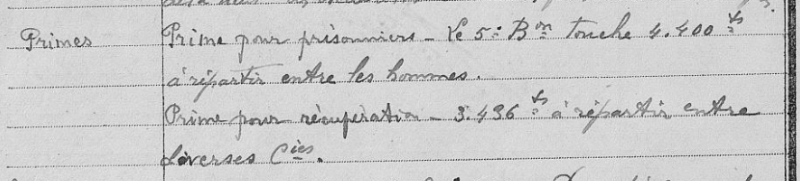 Primes Prime pour prisonniers - Le 5e Bon touche 4.400 fs
à répartir entre les hommes.
Prime pour récupération - 3.436 fs à répartir entre
diverses Cies.